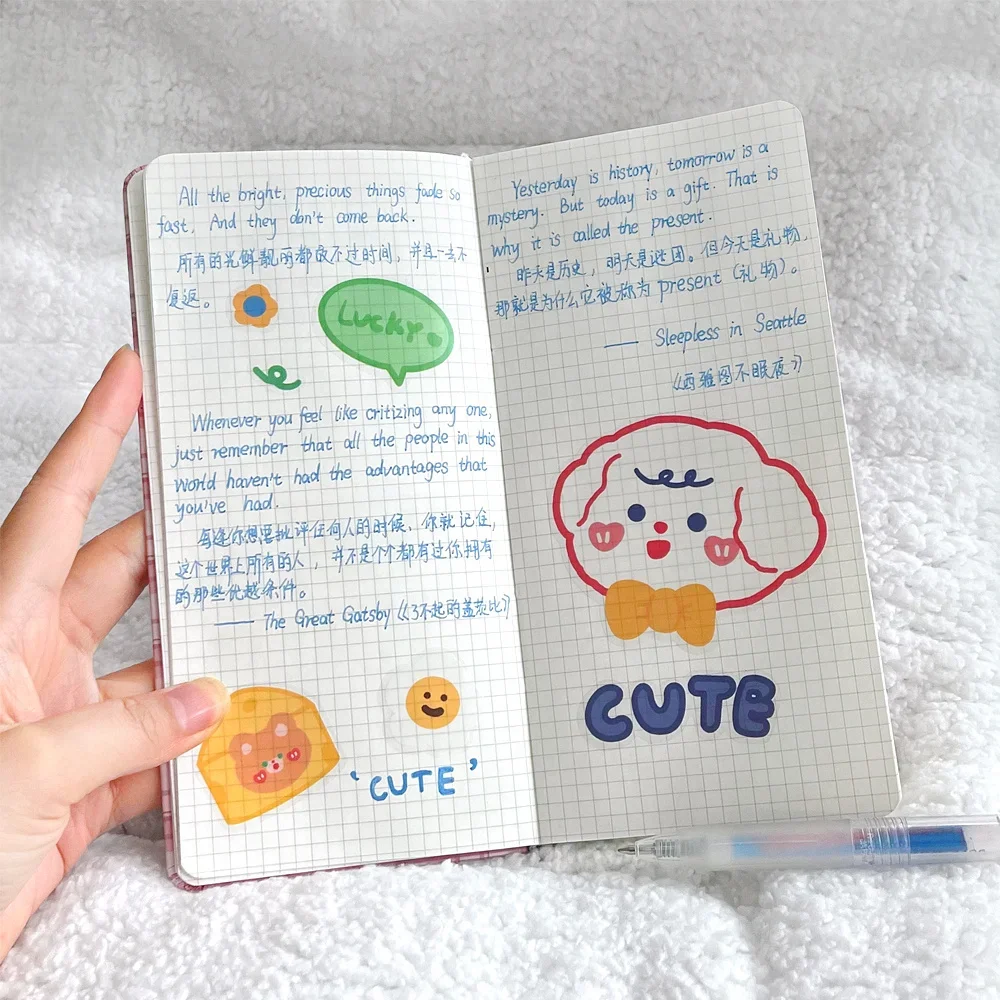 All the bright, precious things fade so
fast, And they don't come back.
所有的光鲜靓丽都敌不过时间，并且一去不
复返。
Lucky.
Whenever you feel like critizing any one,
just remember that all the people in this
world haven't had the advantages that
you've had.
每逢你想要批评任何人的时候，你就记住，
这个世界上所有的人，并不是个个都有过你拥有
的那些优越条件。
—— The Great Gatsby《了不起的盖茨比》
'CUTE'
Yesterday is history, tomorrow is a
mystery. But today is a gift. That is
why it is called the present.
昨天是历史，明天是谜团。但今天是礼物，
那就是为什么它被称为 present（礼物）。
—— Sleepless in Seattle
《西雅图不眠夜》
CUTE